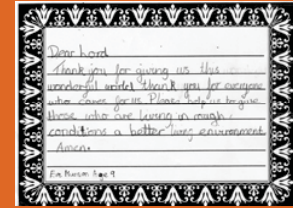 Dear Lord
Thank you for giving us this
wonderful world, thank you for everyone
who cares for us. Please help us to give
those who are living in rough
conditions a better living environment
Amen.
Age 9